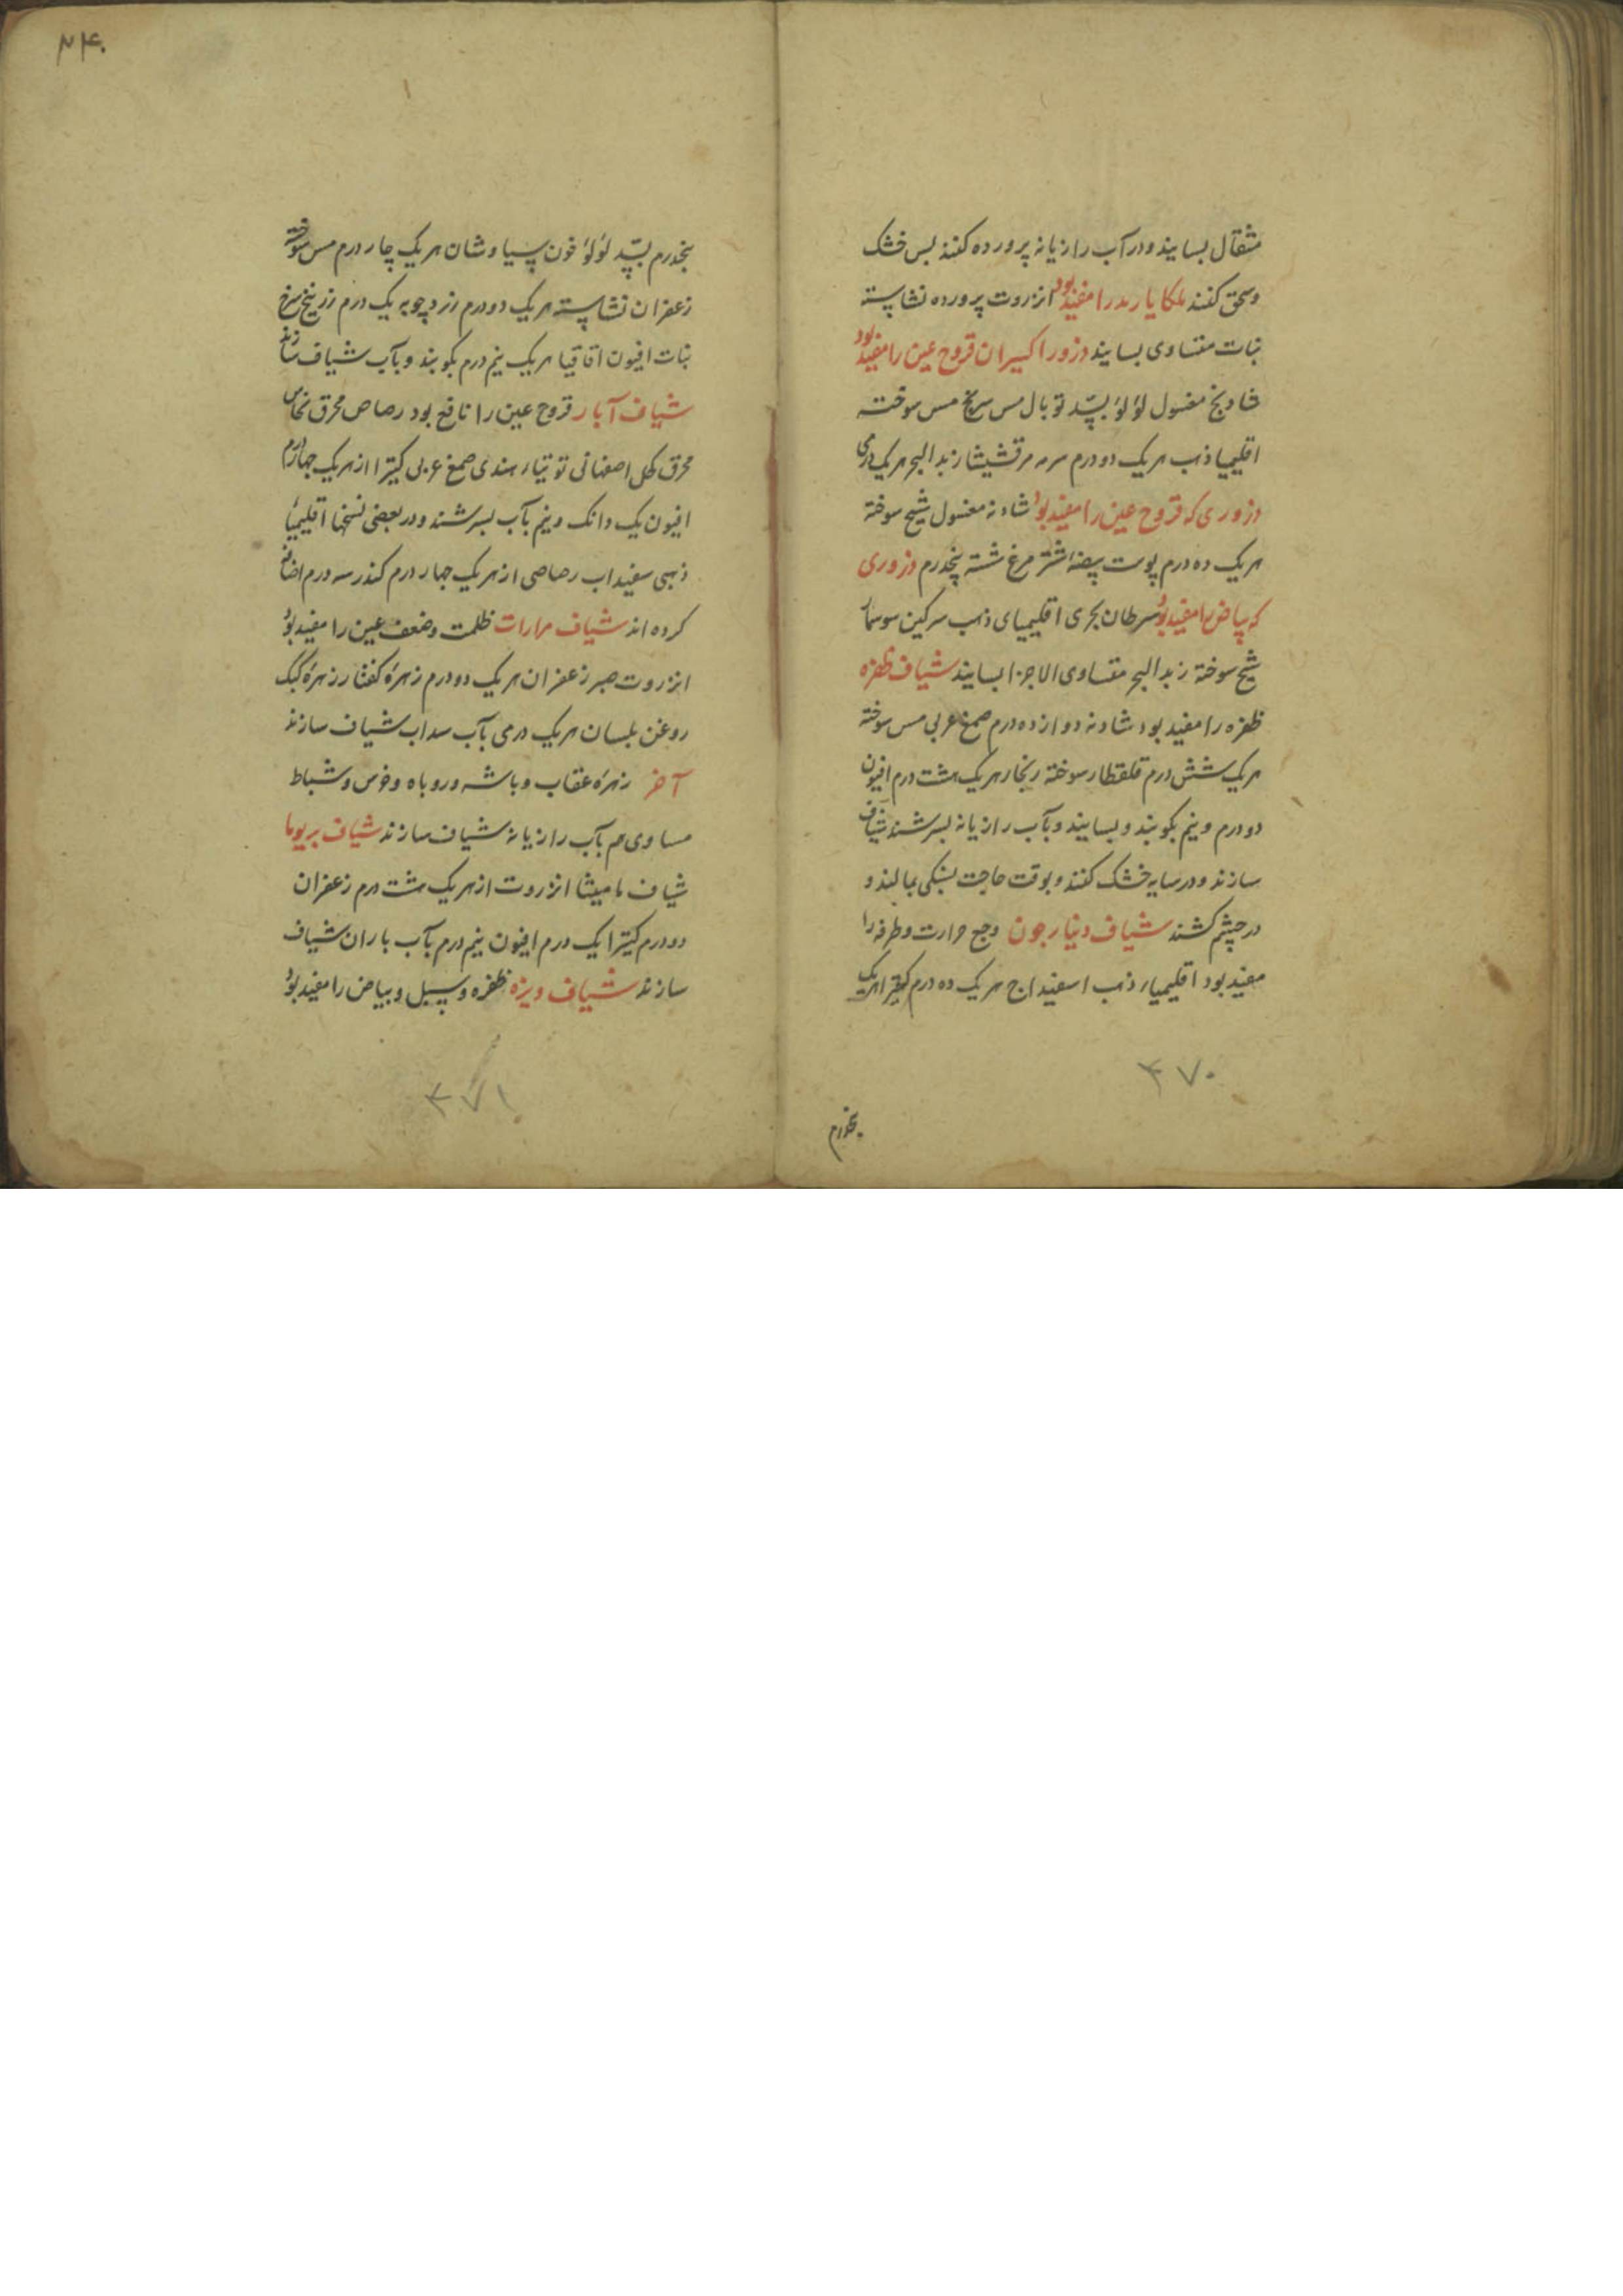 مثقال بسایند و در آب رازیانه پرورده کنند پس خشک
و سحق کنند ملکایا رمد را مفید بود انزروت پرورده نشاسته
نبات متساوی بسایند ذرور اکسیران قروح عین را مفید بود
شادنج مغسول لؤلؤ بسّد توبال مس سرنج مس سوخته
اقلیمیا ذهب هر یک دو درم سرمه مرقشیشا زبد البحر هر یک درمی
ذروری که قروح عین را مفید بود شادنه مغسول شیح سوخته
هر یک ده درم پوست بیضه شتر مرغ شسته پنجدرم ذروری
که بیاض را مفید بود سرطان بحری اقلیمیای ذهب سرکین سوسمار
شیح سوخته زبد البحر متساوی الاجزا بسایند شیاف ظفره
ظفره را مفید بود شادنه دوازده درم صمغ عربی مس سوخته
هر یک شش درم قلقطار سوخته زنجار هر یک هشت درم افیون
دو درم و نیم بکوبند و بسایند و بآب رازیانه بسرشند شیاف
سازند و در سایه خشک کنند و بوقت حاجت بسنکی بمالند و
در چشم کشند شیاف دنیارجون وجع حرارت و طرفه را
مفید بود اقلیمیاء ذهب اسفیداج هر یک ده درم کتیرا هر یک
۴۷۰
پنجدرم
۲۴۰
پنجدرم بسّد لؤلؤ خون سیاوشان هر یک چار درم مس سوخته
زعفران نشاسته هر یک دو درم زردچوبه یک درم زرنیخ سرخ
نبات افیون اقاقیا هر یک نیم درم بکوبند و بآب شیاف سازند
شیاف آبار قروح عین را نافع بود رصاص محرق نحاس
محرق کحل اصفهانی توتیاء هندی صمغ عربی کتیرا از هر یک چهار درم
افیون یک دانک و نیم بآب بسرشند و در بعضی نسخها اقلیمیاء
ذهبی سفیداب رصاصی از هر یک چهار درم کندر سه درم اضافه
کرده اند شیاف مرارات ظلمت و ضعف عین را مفید بود
انزروت صبر زعفران هر یک دو درم زهرهٔ کفتار زهرهٔ کبک
روغن بلسان هر یک درمی بآب سداب شیاف سازند
آخر زهرهٔ عقاب و باشه و روباه و خرس و شباط
مساوی هم بآب رازیانه شیاف سازند شیاف بریوما
شیاف مامیثا انزروت از هر یک هشت درم زعفران
دو درم کتیرا یک درم افیون نیم درم بآب باران شیاف
سازند شیاف ویزه ظفره و سبل و بیاض را مفید بود
۴۷۱